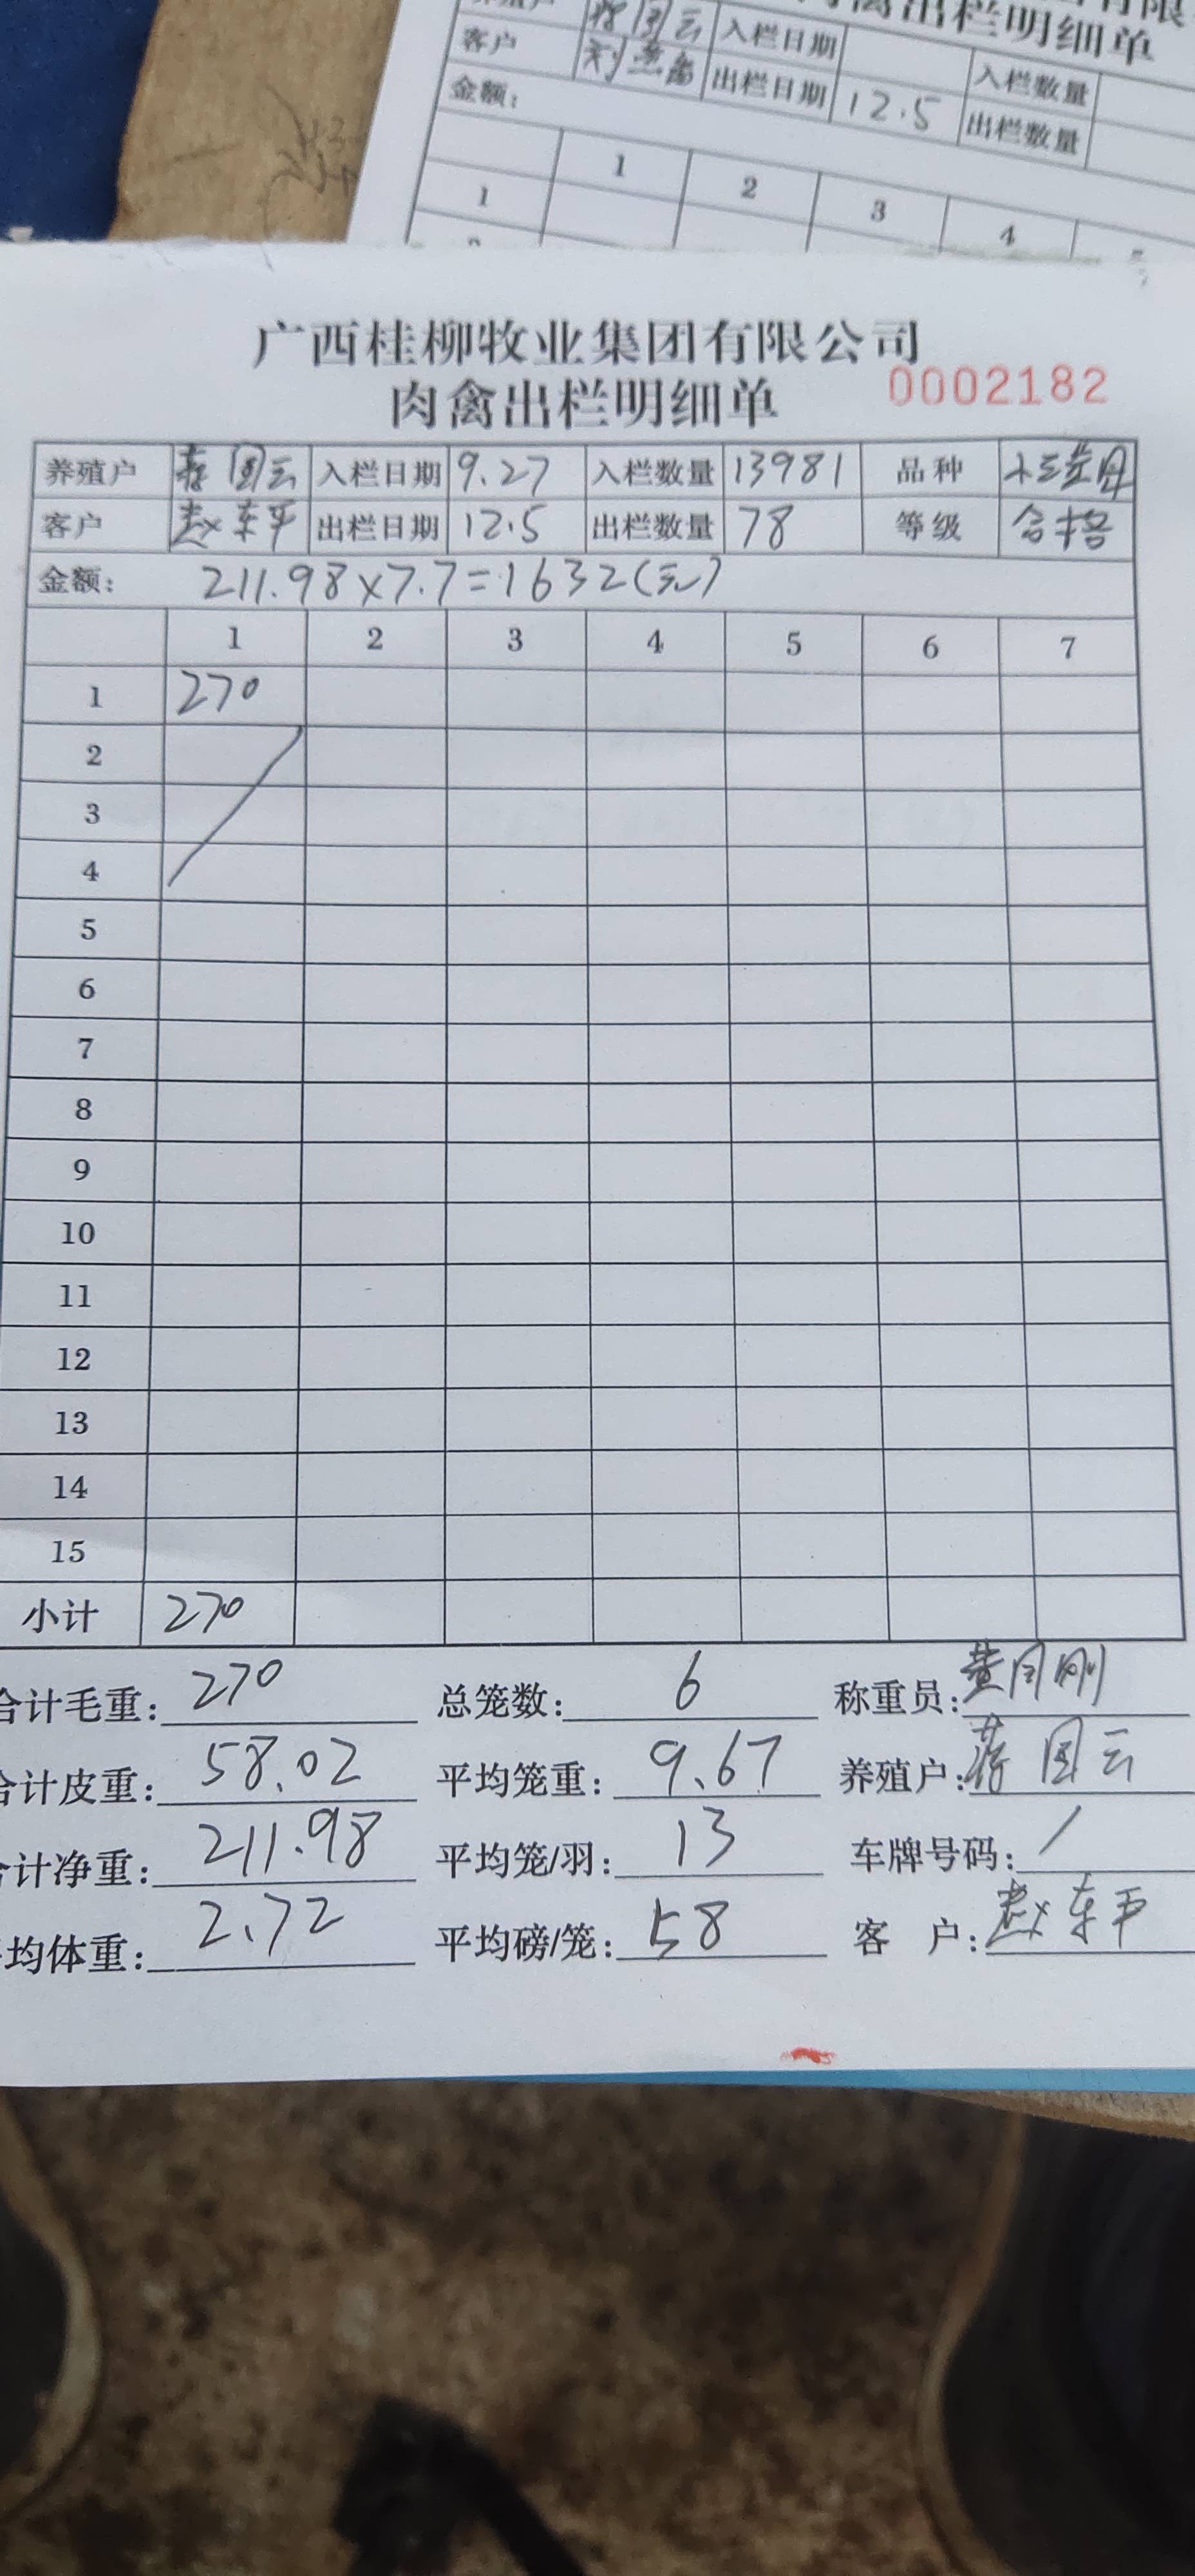 肉禽出栏明细单
养殖户 蒋团云 入栏日期 入栏数量
客户 刘 出栏日期 12.5 出栏数量
金额:
1 2 3 4
1
广西桂柳牧业集团有限公司
肉禽出栏明细单 0002182
养殖户 蒋团云 入栏日期 9.27 入栏数量 13981 品种
客户 赵车平 出栏日期 12.5 出栏数量 78 等级 合格
金额: 211.98×7.7=1632(元)
1 2 3 4 5 6 7
1 270
2
3
4
5
6
7
8
9
10
11
12
13
14
15
小计 270
合计毛重: 270 总笼数: 6 称重员: 黄同刚
合计皮重: 58.02 平均笼重: 9.67 养殖户: 蒋团云
合计净重: 211.98 平均笼/羽: 13 车牌号码: /
平均体重: 2.72 平均磅/笼: 58 客 户: 赵车平